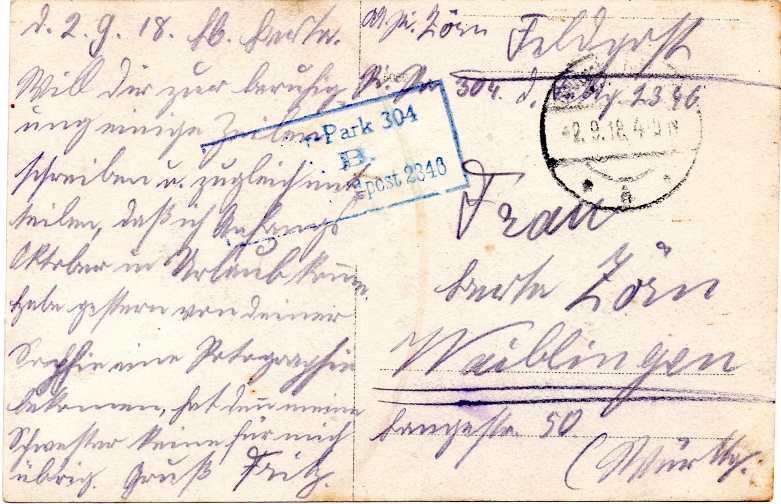 d. 2.9.18. Lb. Berta.
Will dir zur beruhig-
ung einige Zeilen
schreiben u. zugleich mit
teilen, daß ich Anfangs
Oktober in Urlaub komme.
Habe gestern von deiner
Sophie eine Potographie
bekommen, hat denn meine
Schwester keine für mich
übrig. Gruß Fritz.
Zörn
Feldpost
304. d. 2346.
Park 304
B.
post 2346
2.9.18. 4-5 N
Frau
Berta Zörn
Waiblingen
Langestr. 50.
(Württg.